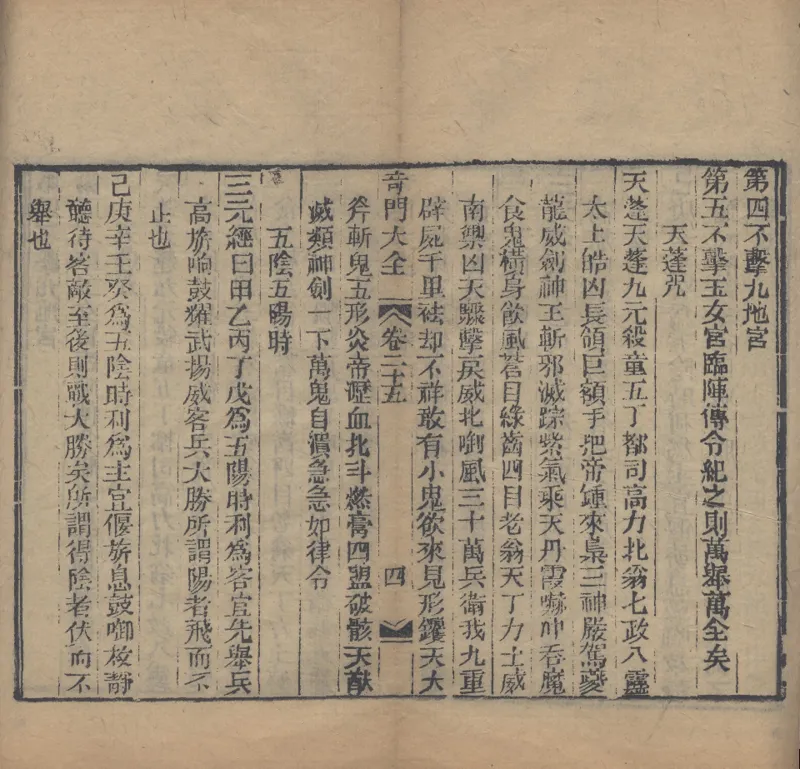 第四不擊九地宮
第五不擊玉女宮臨陣傳令紀之則萬舉萬全矣
天蓬咒
天蓬天蓬九元殺童五丁都司高力北翁七政八靈
太上皓凶長顱巨額手把帝鍾素梟三神嚴駕夔
龍威劍神王斬邪滅踪紫氣乘天丹霞嚇吞魔
食鬼橫身飲風蒼目綠齒四目老翁天丁力士威
南禦凶天騶擊戾威北啣風三十萬兵衛我九重
辟屍千里袪却不祥敢有小鬼欲來見形鑺天大
奇門大全 卷二十五 四
斧斬鬼五形炎帝瀝血北斗燃膏四盟破骸天猷
滅類神劍一下萬鬼自潰急急如律令
五陰五陽時
三元經曰甲乙丙丁戊為五陽時利為客宜先舉兵
高旂响鼓耀武揚威客兵大勝所謂陽者飛而不
止也
己庚辛壬癸為五陰時利為主宜偃旂息鼓啣枚靜
聽待客敵至後則戰大勝矣所謂得陰者伏而不
舉也